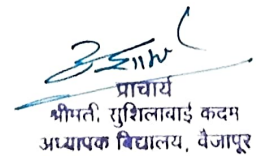 प्राचार्य
श्रीमती. सुशिलाबाई कदम
अध्यापक विद्यालय, वैजापूर